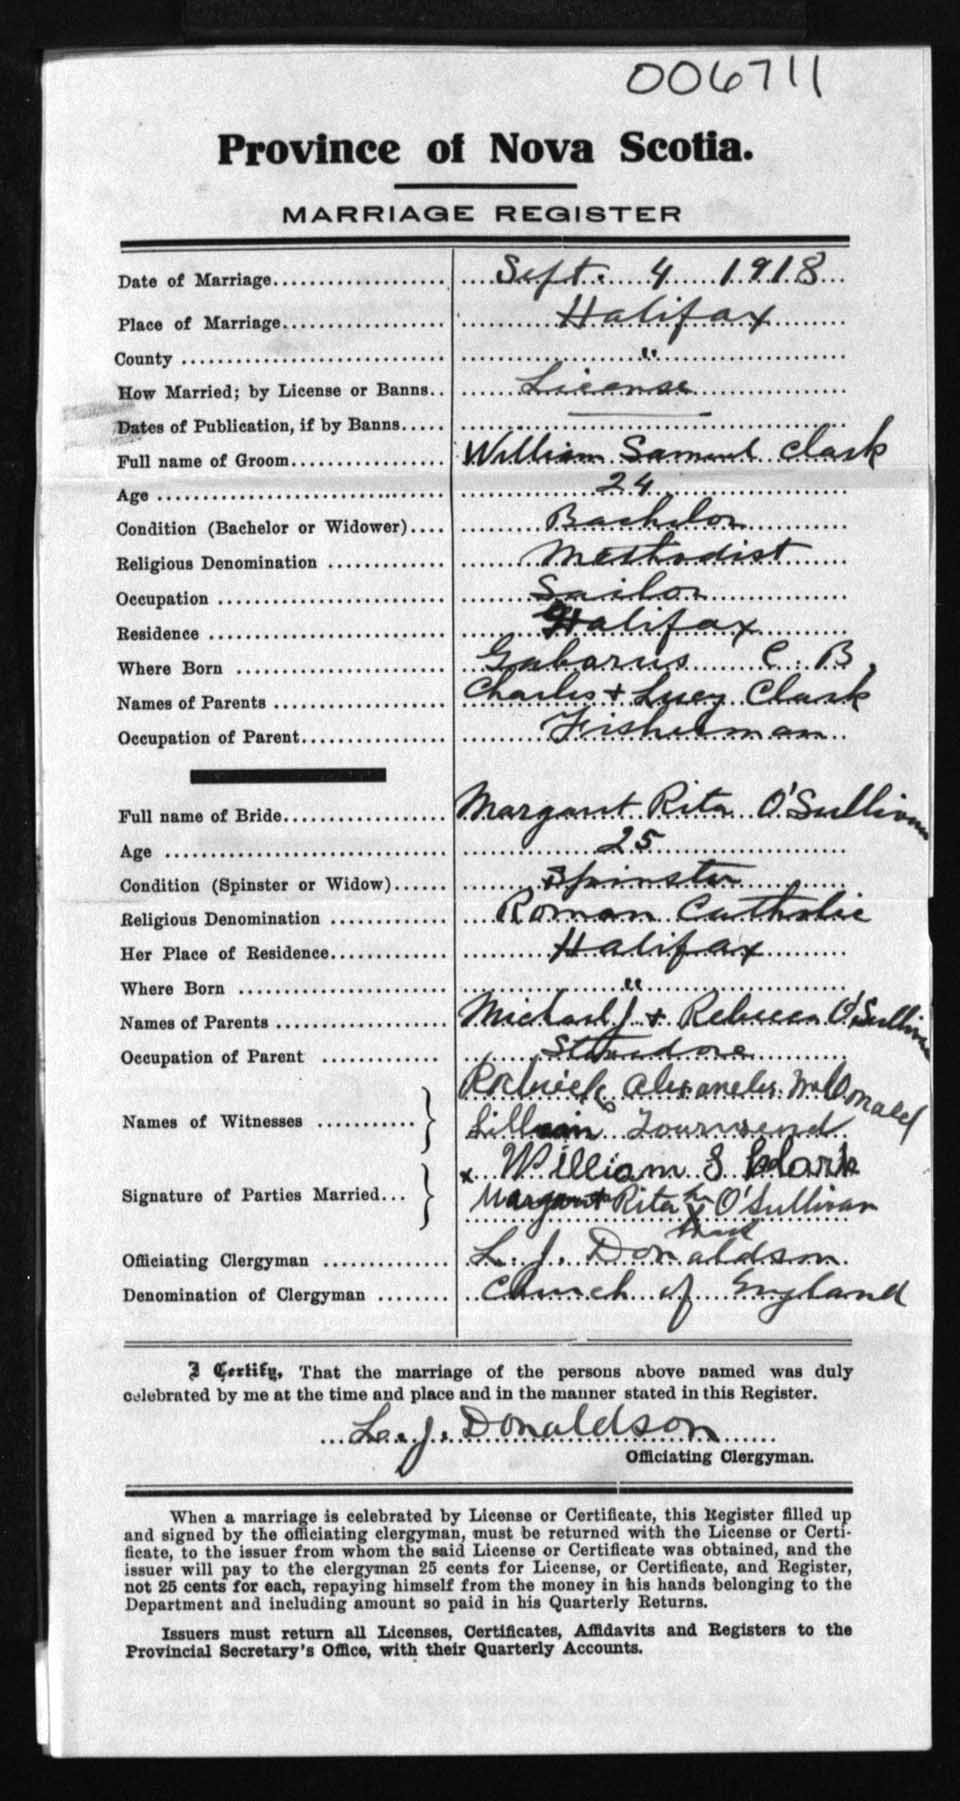 006711
Province of Nova Scotia.
MARRIAGE REGISTER
Date of Marriage Sept. 4 1918
Place of Marriage Halifax
County "
How Married; by License or Banns License
Dates of Publication, if by Banns
Full name of Groom William Samuel Clark
Age 24
Condition (Bachelor or Widower) Bachelor
Religious Denomination Methodist
Occupation Sailor
Residence Halifax
Where Born Gabarus C. B.
Names of Parents Charles + Lucy Clark
Occupation of Parent Fisherman
Full name of Bride Margaret Rita O'Sullivan
Age 25
Condition (Spinster or Widow) Spinster
Religious Denomination Roman Catholic
Her Place of Residence Halifax
Where Born "
Names of Parents Michael J. + Rebecca O'Sullivan
Occupation of Parent Stevedore
Roderick Alexander McDonald
Names of Witnesses
Lillian Townsend
x William S Clark
Signature of Parties Married
Margaret Rita her x O'Sullivan
mark
Officiating Clergyman L. J. Donaldson
Denomination of Clergyman Church of England
I Certify, That the marriage of the persons above named was duly
celebrated by me at the time and place and in the manner stated in this Register.
L. J. Donaldson
Officiating Clergyman.
When a marriage is celebrated by License or Certificate, this Register filled up
and signed by the officiating clergyman, must be returned with the License or Certi-
ficate, to the issuer from whom the said License or Certificate was obtained, and the
issuer will pay to the clergyman 25 cents for License, or Certificate, and Register,
not 25 cents for each, repaying himself from the money in his hands belonging to the
Department and including amount so paid in his Quarterly Returns.
Issuers must return all Licenses, Certificates, Affidavits and Registers to the
Provincial Secretary's Office, with their Quarterly Accounts.